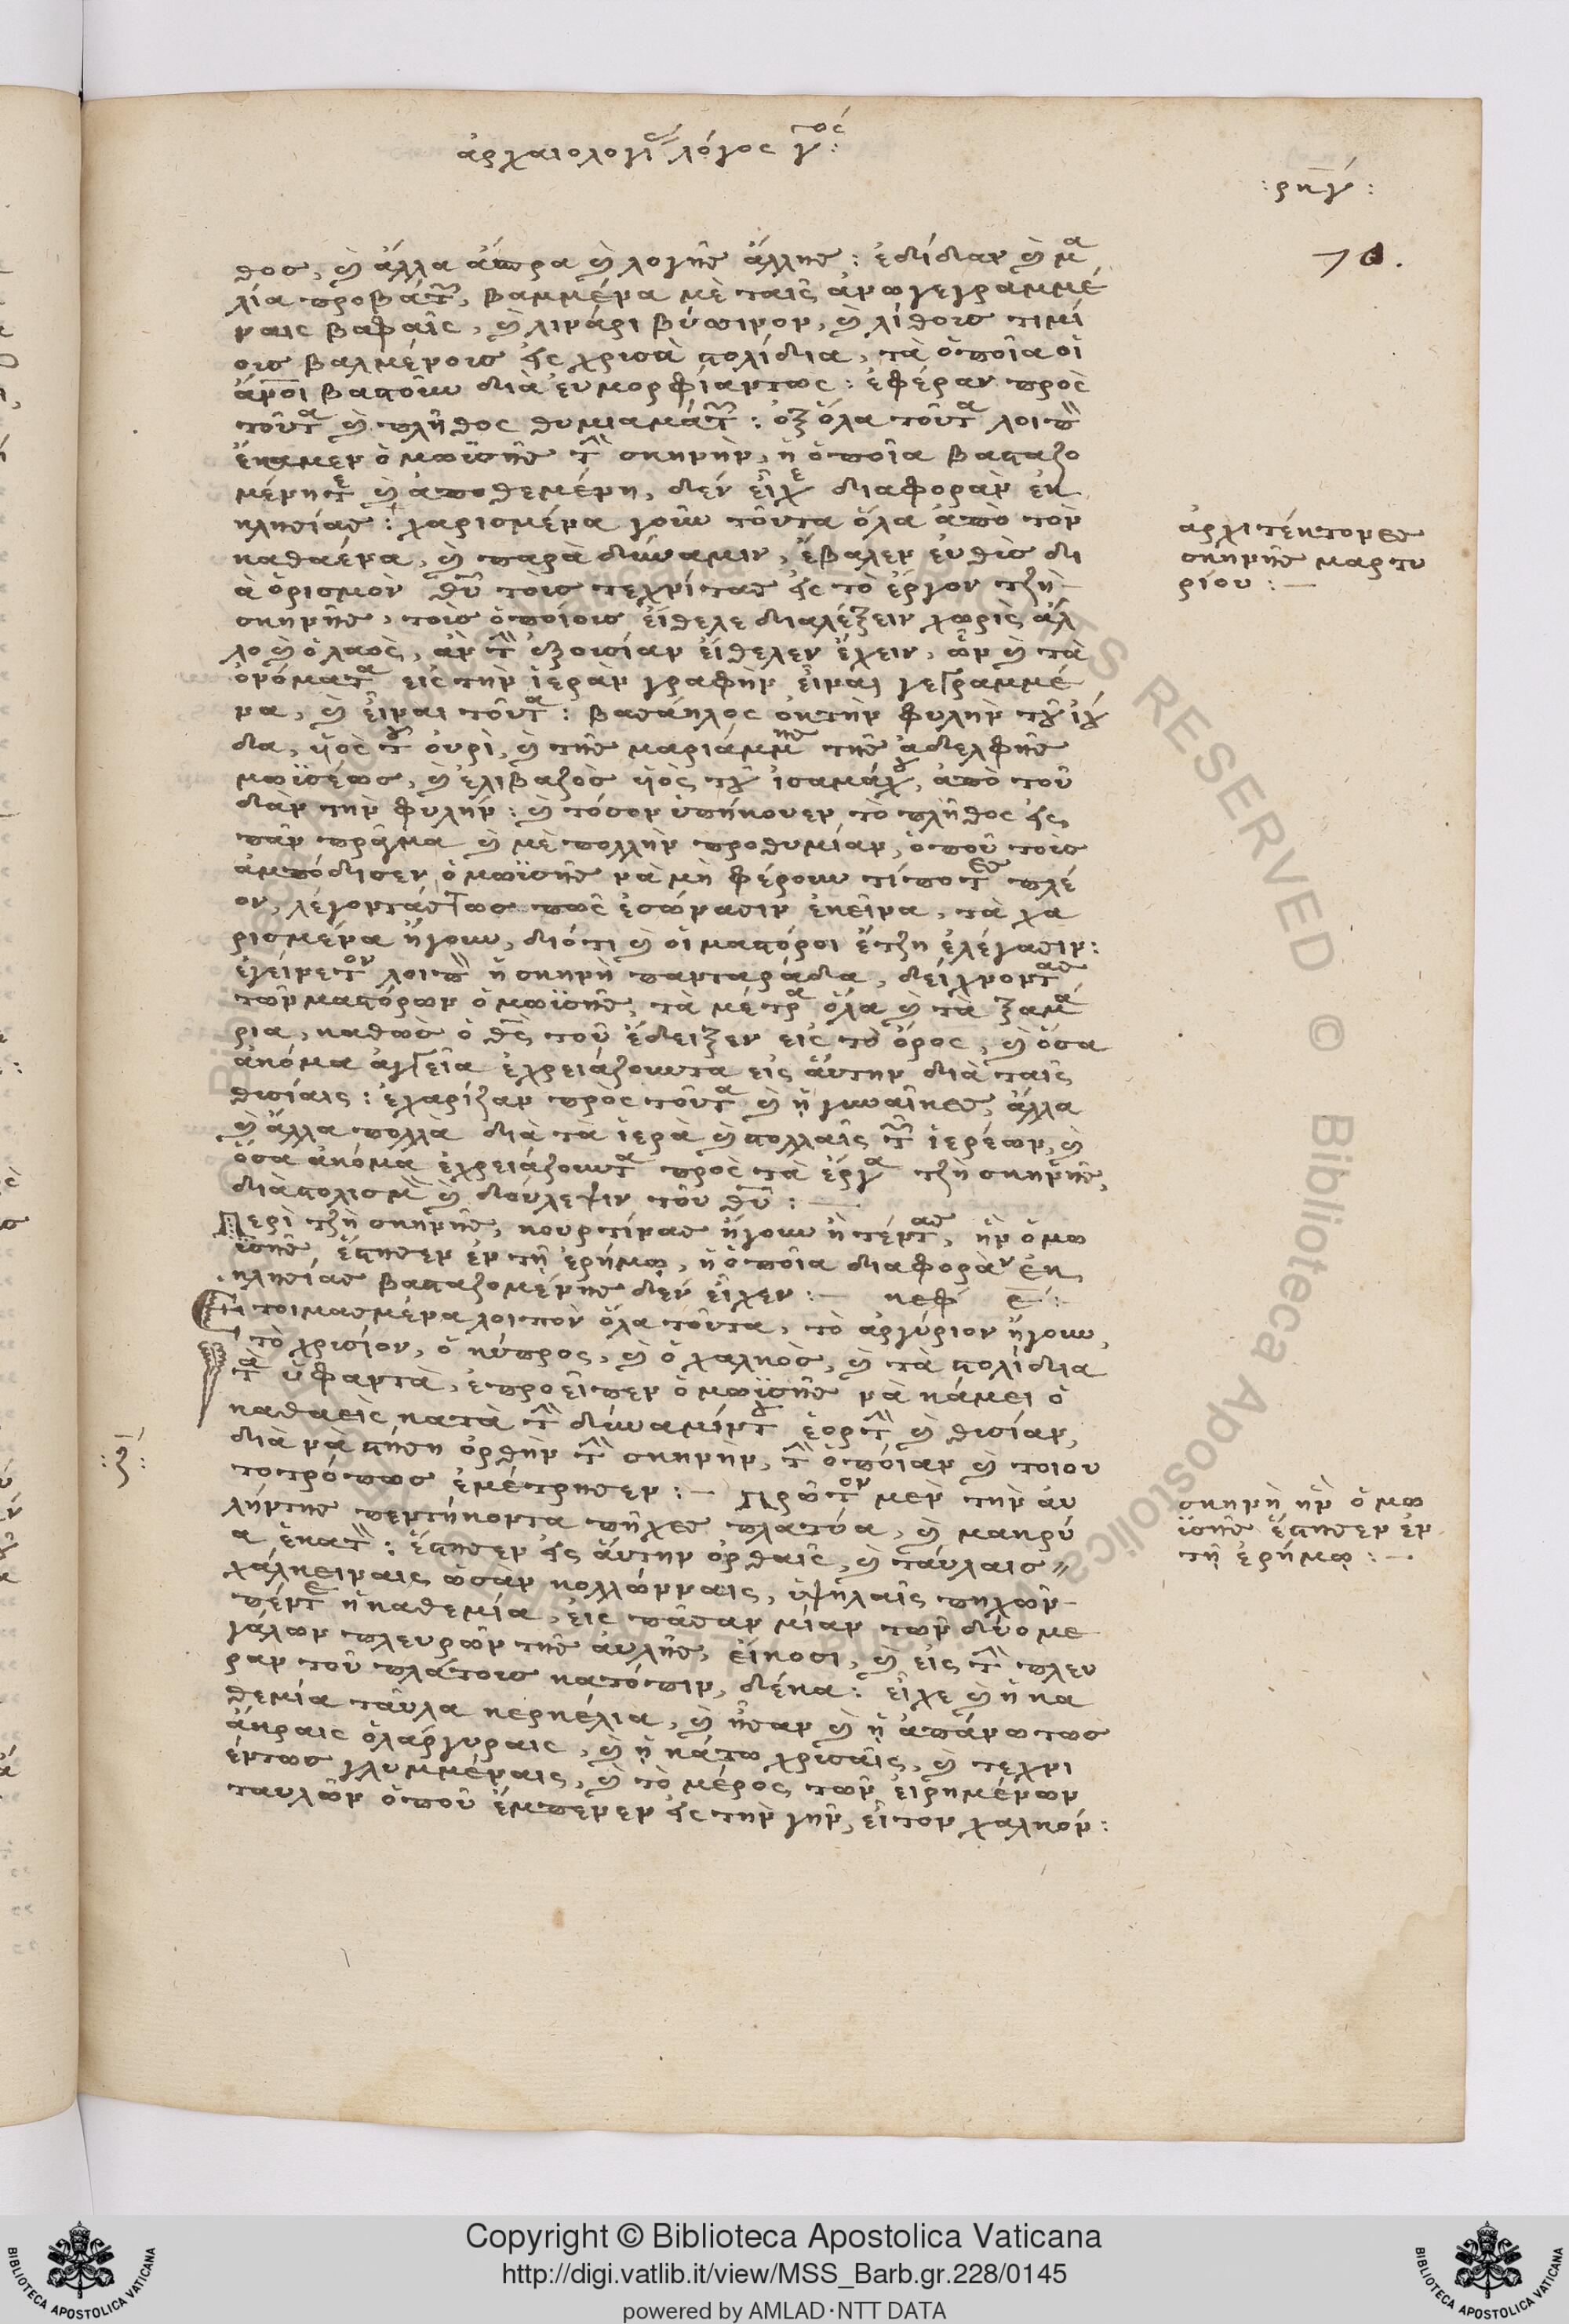 ἀρχαιολογί λόγος γος:
:ρκγ:
70.
θος, καὶ ἄλλα ἄσπρα καὶ λογῆς ἄλλης: ἐδίδαν καὶ μα
λία προβάτων, βαμμένα μὲ ταῖς ἀνωγεγραμμέ
ναις βαφαῖς, καὶ λινάρι βύσινον, καὶ λίθους τιμί
ους βαλμένους εἰς χρισὰ στολίδια, τὰ ὁποῖα οἱ
ἄνοι βαστοῦν διὰ εὐμορφίαντως: ἐφέραν πρὸς
τοῦτα καὶ πλῆθος θυμιαμάτων: ὀξ ὅλα τοῦτα λοιπὸν
ἔκαμεν ὁ μωϊσῆς τὴν σκηνὴν, ἡ ὁποῖα βασταζο
μένητε καὶ ἀποθεμένη, δὲν εἶχε διαφορὰν ἐκ
κλησίας: χαρισμένα γοῦν τοῦντα ὅλα ἀπὸ τὸν
καθαένα, καὶ παρὰ δύναμιν, ἔβαλεν εὐθὶς δι
ὰ ὁρισμὸν θῦ τοὺς τεχνίτας εἰς τὸ ἔργον τζῆ
σκηνῆς, τοὺς ὁποίους εἴθελε διαλέξειν χωρὶς ἄλ
λο καὶ ὁ λαὸς, ἂν τὴν ἐξουσίαν εἴθελεν ἔχειν, ὧν καὶ τὰ
ὀνόματα εἰς τὴν ἱερὰν γραφὴν εἶναι γεγραμμέ
να, καὶ εἶναι τοῦτα: βασάηλος ὀκ τὴν φυλὴν τοῦ ἰού
δα, ὑὸς τοῦ οὐρὶ, καὶ τῆς μαριάμμης τῆς ἀδελφῆς
μωϊσέως, καὶ ἐλιβαζὸς ὑὸς τοῦ ἰσαμάχου, ἀπὸ τοῦ
δὰν τὴν φυλήν: καὶ τόσον ὑπήκουεν τὸ πλῆθος εἰς
πᾶν πρᾶγμα καὶ μὲ πολλὴν προθυμίαν, ὁποῦ τοὺς
ἀμπόδισεν ὁ μωϊσῆς νὰ μὴ φέρουν τίποτες πλέ
ον, λέγοντάςτως πῶς ἐσώνασιν ἐκεῖνα, τὰ χα
ρισμένα ἤγουν, διότι καὶ οἱ μαστόροι ἔτζη ἐλέγασιν:
ἐγείρετον λοιπὸν ἡ σκηνὴ πανταράδα, δείχνοντας
τῶν μαστόρων ὁ μωϊσῆς, τὰ μέτρα ὅλα καὶ τὰ ξαμά
ρια, καθὼς ὁ θς τοῦ ἔδειξεν εἰς τὸ ὄρος, καὶ ὅσα
ἀκόμα ἀγγεῖα ἐχρειάζουντα εἰς αὔτην διὰ ταῖς
θυσίαις: ἐχαρίζαν πρὸς τοῦτα καὶ ἡ γυναῖκες, ἄλλα
καὶ ἄλλα πολλὰ διὰ τὰ ἱερὰ καὶ στολλαῖς τῶν ἱερέων, καὶ
ὅσα ἀκόμα ἐχρειάζουντα πρὸς τὰ ἔργα τζῆ σκηνῆς,
διὰ στολισμὸ καὶ δούλεψιν τοῦ θῦ:
Περὶ τζῆ σκηνῆς, κουρτίνας ἤγουν ἢ τέντας, ἣν ὁ μω
ϊσῆς ἔστησεν ἐν τῇ ἐρήμῳ, ἡ ὁποῖα διαφορὰν ἐκ
κλησίας βασταζομένης δὲν εἶχεν: κεφ ε:
Ετοιμασμένα λοιπὸν ὅλα τοῦντα, τὸ ἀργύριον ἤγουν,
τὸ χρισίον, ὁ κύπρος, καὶ ὁ χαλκὸς, καὶ τὰ στολίδια
τὰ ὑφαντὰ, ἐπροεῖπεν ὁ μωϊσῆς νὰ κάμει ὁ
καθαεὶς κατὰ τὴν δύναμίντου ἑορτὴν καὶ θυσίαν,
διὰ νὰ στήση ὀρθὴν τὴν σκηνὴν, τὴν ὁποίαν καὶ τοιου
τοτρόπως ἐμέτρησεν: Πρῶτον μὲν τὴν αὐ
λήντης πεντήκοντα πῆχες πλατύα, καὶ μακρύ
α ἑκατὸν: ἔστησεν εἰς αὔτην ὀρθαῖς, καὶ τάυλαις
χάλκειναις ὡσὰν κολλώνναις, ὑψηλαῖς πηχῶν
πέντε ἡ καθεμία, εἰς πᾶσαν μίαν τῶν δύο με
γάλων πλευρῶν τῆς αὐλῆς, εἴκοσι, καὶ εἰς τὴν πλευ
ρὰν τοῦ πλάτους κατόπιν, δέκα: εἶχε καὶ ἡ κα
θεμία τάυλα κερκέλια, καὶ ἦσαν καὶ ἡ ἀπάνωτως
ἄκραις ὁλάργυραις, καὶ ἡ κάτω χρισαῖς, καὶ τεχνι
έντως γλυμμέναις, καὶ τὸ μέρος τῶν εἰρημένων
ταυλῶν ὁποῦ ἔμπενεν εἰς τὴν γῆν, εἶτον χαλκόν:
ἀρχιτέκτονες
σκηνῆς μαρτυ
ρίου:
:ζ:
σκηνὴ ἣν ὁ μω
ϊσῆς ἔστησεν ἐν
τῇ ἐρήμῳ:
Copyright © Biblioteca Apostolica Vaticana
http://digi.vatlib.it/view/MSS_Barb.gr.228/0145
powered by AMLAD·NTT DATA
BIBLIOTECA APOSTOLICA VATICANA
BIBLIOTECA APOSTOLICA VATICANA